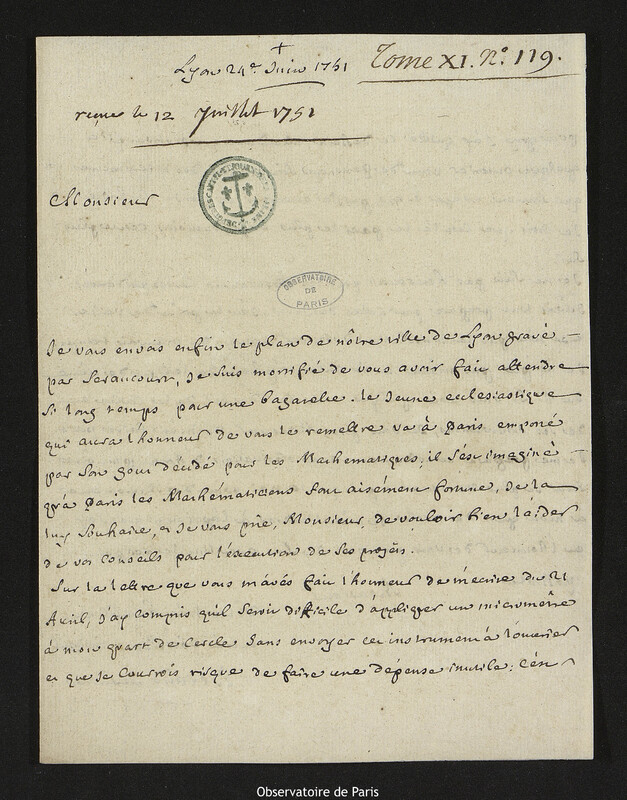 +
Lyon 24e Juin 1751
Tome XI. N.o 119.
reçue le 12 Juillet 1751
Monsieur
OBSERVATOIRE
DE
PARIS
Je vous envois enfin le plan de nôtre ville de Lyon gravé
par Seraucourt, Je suis mortifié de vous avoir fait attendre
si long temps pour une bagatelle. le Jeune ecclesiastique
qui aura l'honneur de vous le remettre va à Paris emporté
par son gout décidé pour les Mathematiques, il s'est imaginé
qu'à Paris les Mathématiciens font aisément fortune, Je la
luy souhaite, et Je vous prie, Monsieur, de vouloir bien l'aider
de vos conseils pour l'éxecution de ses projets.
Sur la lettre que vous m'avés fait l'honneur de m'écrire du 21
Avril, J'ay compris qu'il seroit difficile d'appliquer un micromêtre
à mon quart de Cercle sans envoyer cet instrument à l'ouvrier
et que Je Courrois risque de faire une dépense inutile; c'est
Observatoire de Paris